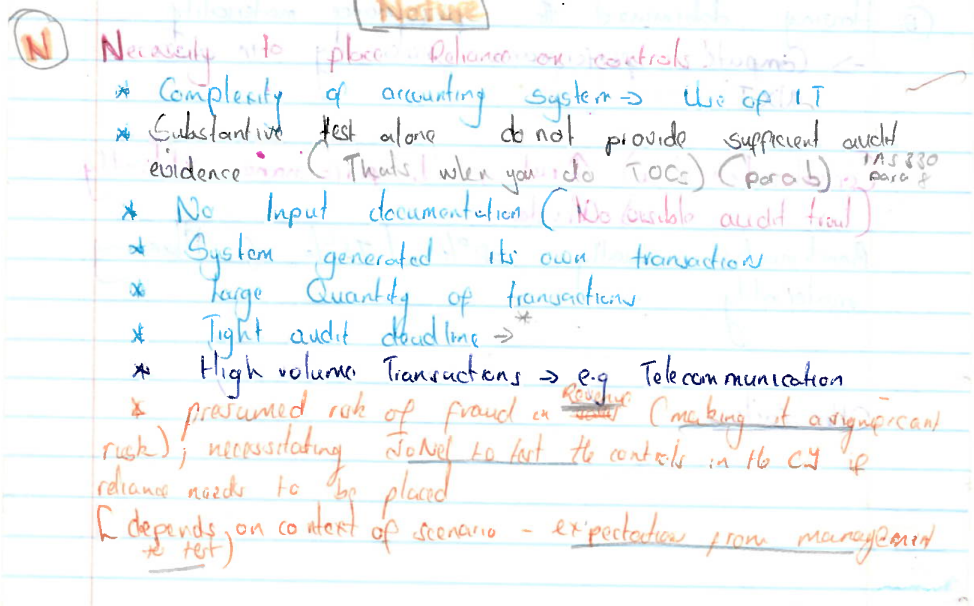 Nature
N
Necassity to place Reliance on controls
* Complexity of accounting system → Use of IT
* Substantive test alone do not provide sufficient audit
evidence (Thats when you do TOCs) (para b) IAS 330
para 8
* No Input documentation (No visible audit trail)
* System generated its own transaction
* Large Quantity of transactions
* Tight audit deadline → *
* High volume Transactions → e.g Telecommunication
* presumed risk of fraud in Revenue (making it a significant
risk); necessitating to test the controls in the CY if
reliance needs to be placed
[depends on context of scenario - expectation from management
to test)